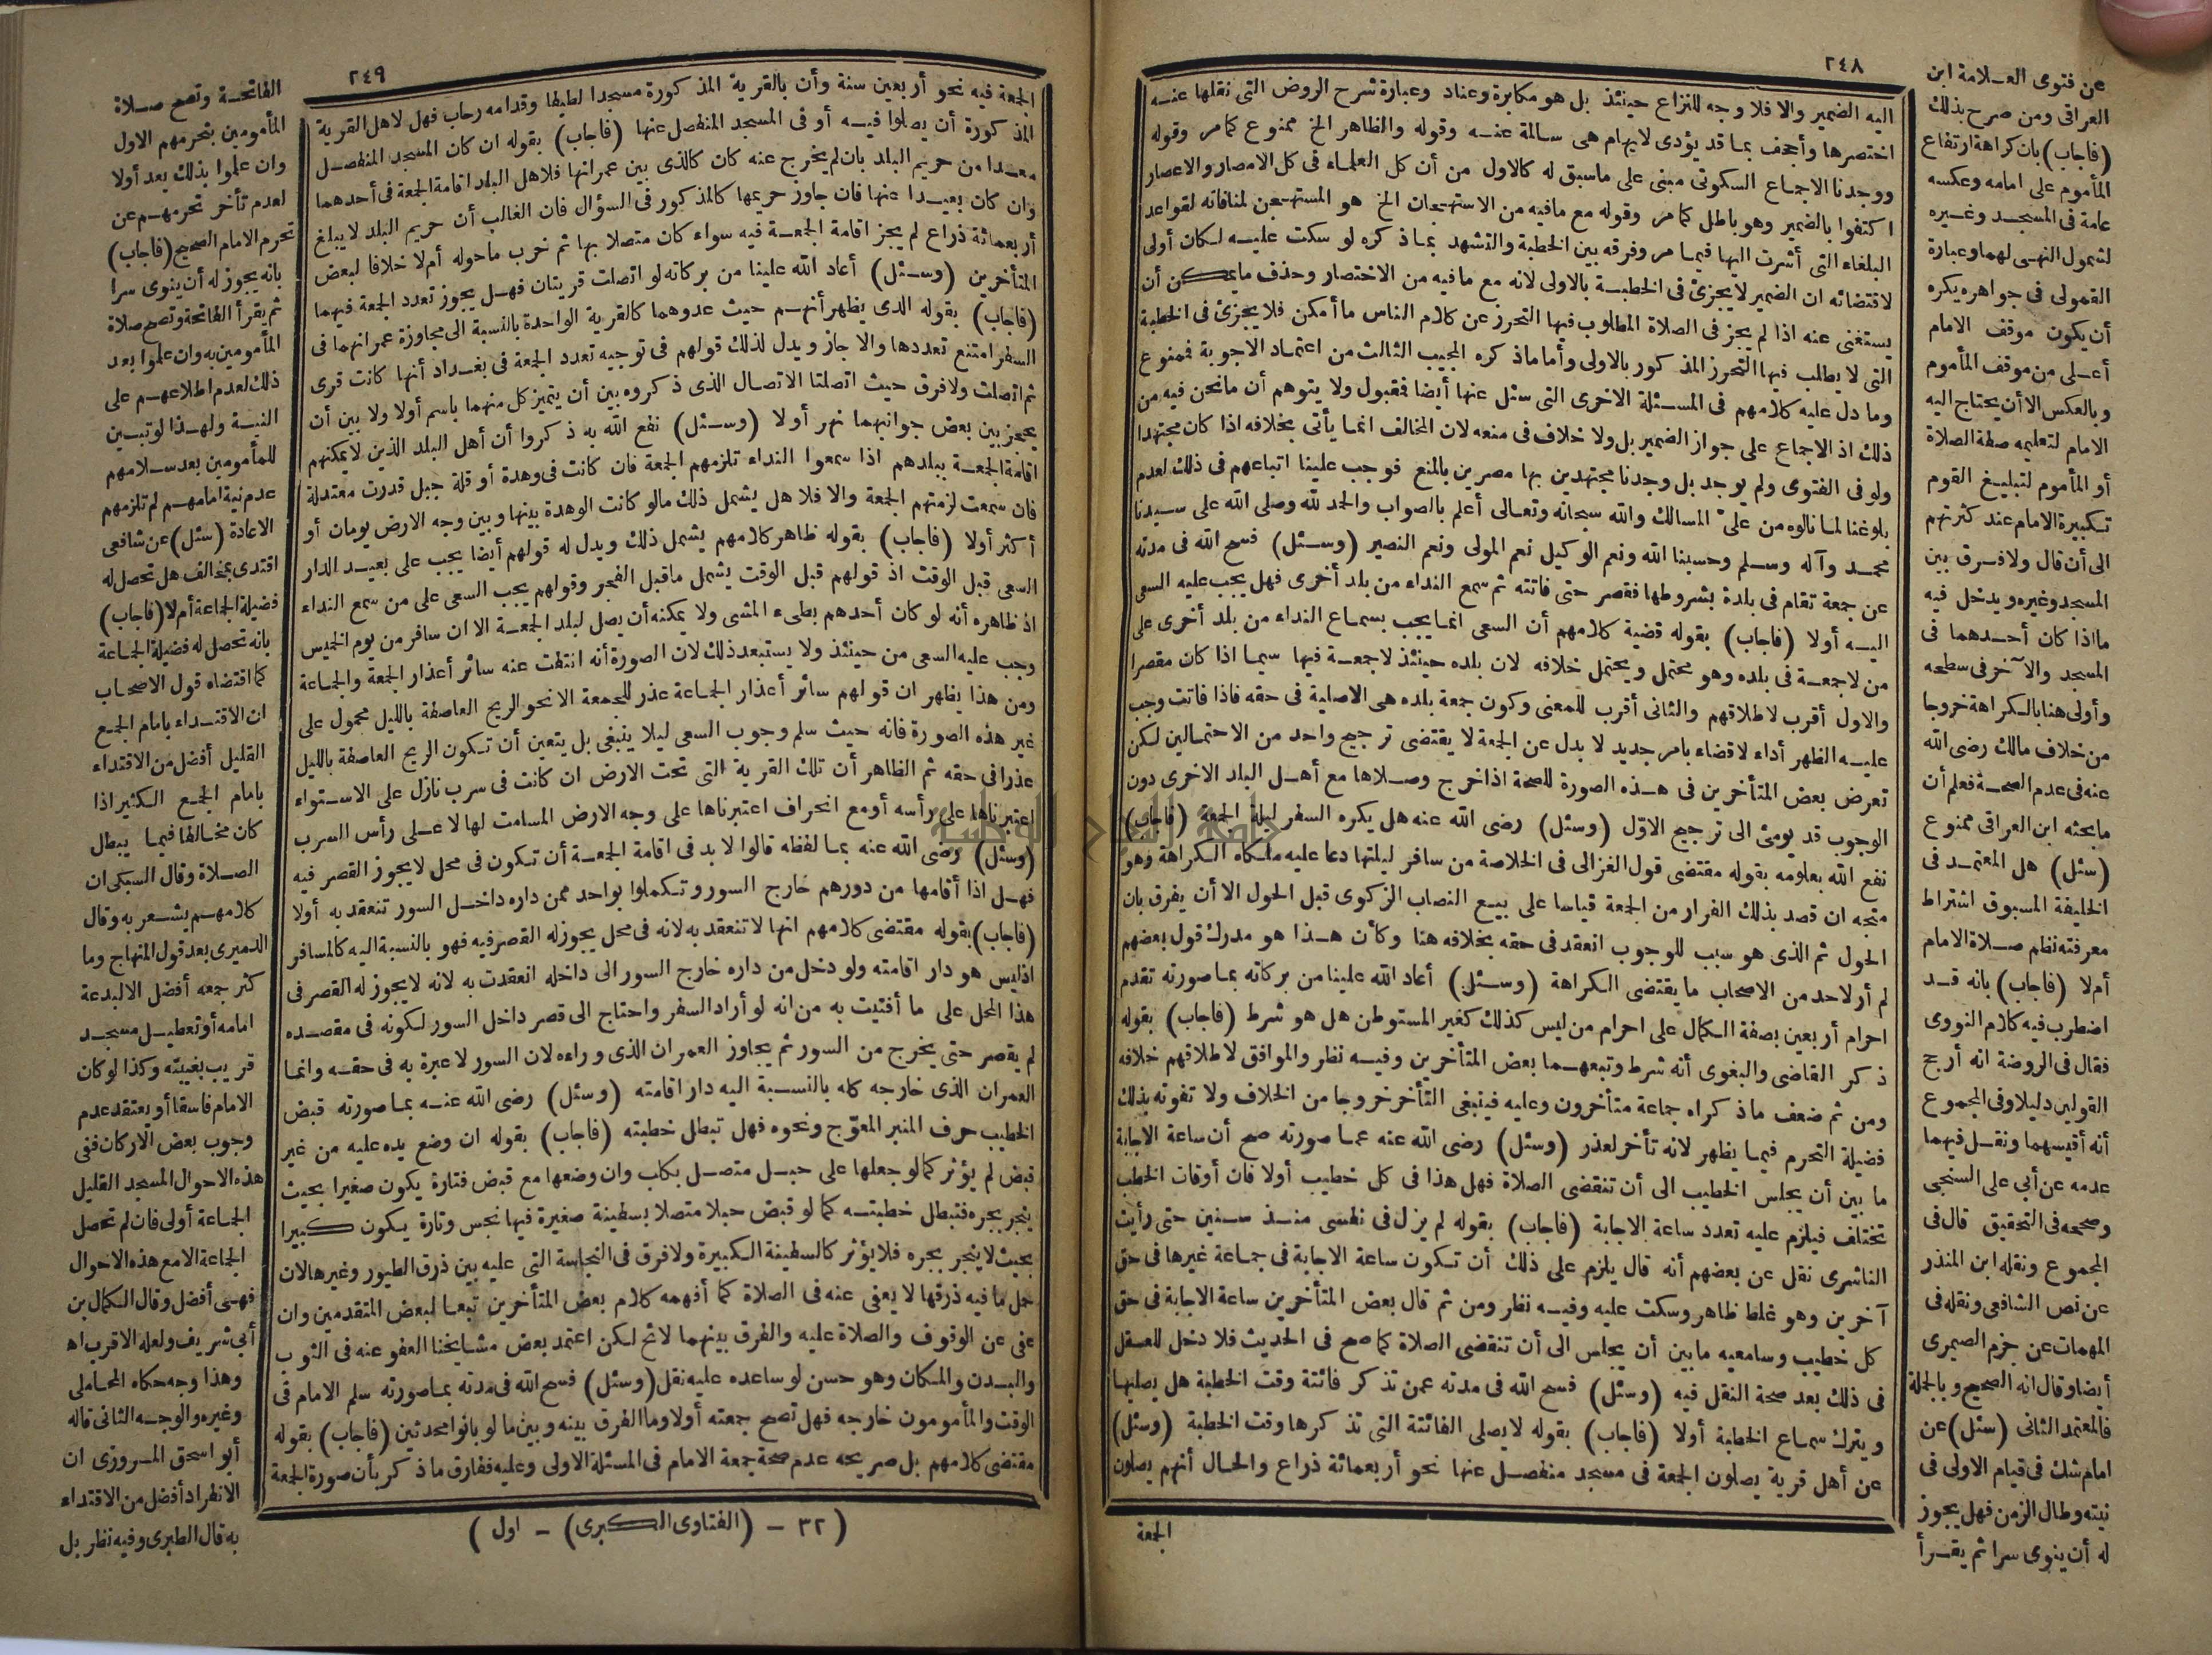 ٢٤٨
اليه الضمير والا فلا وجه للنزاع حينئذ بل هو مكابرة وعناد وعبارة شرح الروض التى نقلها عنه
اختصرها وأجحف بما قد يؤدى لايهام هى سالمة عنه وقوله والظاهر الخ ممنوع كما مر وقوله
ووجدنا الاجماع السكوتى مبنى على ماسبق له كالاول من أن كل العلماء فى كل الامصار والاعصار
اكتفوا بالضمير وهو باطل كما مر وقوله مع مافيه من الاستهجان الخ هو المستهجن لمنافاته لقواعد
البلغاء التى أشرت اليها فيما مر وفرقه بين الخطبة والتشهد بما ذكره لو سكت عليه لكان أولى
لاقتضائه ان الضمير لايجزئ فى الخطبة بالاولى لانه مع مافيه من الاختصار وحذف مايمكن أن
يستغنى عنه اذا لم يجز فى الصلاة المطلوب فيها التحرز عن كلام الناس ما أمكن فلا يجزئ فى الخطبة
التى لا يطلب فيها التحرز المذكور بالاولى وأما ماذكره المجيب الثالث من اعتماد الاجوبة فممنوع
وما دل عليه كلامهم فى المسئلة الاخرى التى سئل عنها أيضا فمقبول ولا يتوهم أن مانحن فيه من
ذلك اذ الاجماع على جواز الضمير بل ولا خلاف فى منعه لان المخالف انما يأتى بخلافه اذا كان مجتهدا
ولو فى الفتوى ولم يوجد بل وجدنا مجتهدين بها مصرين بالمنع فوجب علينا اتباعهم فى ذلك لعدم
بلوغنا لما نالوه من علىّ المسالك والله سبحانه وتعالى أعلم بالصواب والحمد لله وصلى الله على سيدنا
محمد وآله وسلم وحسبنا الله ونعم الوكيل نعم المولى ونعم النصير (وسئل) فسح الله فى مدته
عن جمعة تقام فى بلدة بشروطها فقصر حتى فاتته ثم سمع النداء من بلد أخرى فهل يجب عليه السعى
اليه أولا (فاجاب) بقوله قضية كلامهم أن السعى انما يجب بسماع النداء من بلد أخرى على
من لاجمعة فى بلده وهو محتمل ويحتمل خلافه لان بلده حينئذ لاجمعة فيها سيما اذا كان مقصرا
والاول أقرب لاطلاقهم والثانى أقرب للمعنى وكون جمعة بلده هى الاصلية فى حقه فاذا فاتت وجب
عليه الظهر أداء لاقضاء بامر جديد لا بدل عن الجمعة لا يقتضى ترجيح واحد من الاحتمالين لكن
تعرض بعض المتأخرين فى هذه الصورة للصحة اذا خرج وصلاها مع أهل البلد الاخرى دون
الوجوب قد يومئ الى ترجيح الاوّل (وسئل) رضى الله عنه هل يكره السفر ليلة الجمعة (فاجاب)
نفع الله بعلومه بقوله مقتضى قول الغزالى فى الخلاصة من سافر ليلتها دعا عليه ملكاه الكراهة وهو
متجه ان قصد بذلك الفرار من الجمعة قياسا على بيع النصاب الزكوى قبل الحول الا أن يفرق بان
الحول ثم الذى هو سبب للوجوب انعقد فى حقه بخلافه هنا وكأن هذا هو مدرك قول بعضهم
لم أر لاحد من الاصحاب ما يقتضى الكراهة (وسئل) أعاد الله علينا من بركاته بما صورته تقدم
احرام أربعين بصفة الكمال على احرام من ليس كذلك كغير المستوطن هل هو شرط (فاجاب) بقوله
ذكر القاضى والبغوى أنه شرط وتبعهما بعض المتأخرين وفيه نظر والموافق لاطلاقهم خلافه
ومن ثم ضعف ماذكراه جماعة متأخرون وعليه فينبغى التأخر خروجا من الخلاف ولا تفوته بذلك
فضيلة التحرم فيما يظهر لانه تأخر لعذر (وسئل) رضى الله عنه عما صورته صح أن ساعة الاجابة
ما بين أن يجلس الخطيب الى أن تنقضى الصلاة فهل هذا فى كل خطيب أولا فان أوقات الخطب
تختلف فيلزم عليه تعدد ساعة الاجابة (فاجاب) بقوله لم يزل فى نفسى منذ سنين حتى رأيت
الناشرى نقل عن بعضهم أنه قال يلزم على ذلك أن تكون ساعة الاجابة فى جماعة غيرها فى حق
آخرين وهو غلط ظاهر وسكت عليه وفيه نظر ومن ثم قال بعض المتأخرين ساعة الاجابة فى حق
كل خطيب وسامعيه مابين أن يجلس الى أن تنقضى الصلاة كما صح فى الحديث فلا دخل للعقل
فى ذلك بعد صحة النقل فيه (وسئل) فسح الله فى مدته عمن تذكر فائتة وقت الخطبة هل يصليها
ويترك سماع الخطبة أولا (فاجاب) بقوله لايصلى الفائتة التى تذكرها وقت الخطبة (وسئل)
عن أهل قرية يصلون الجمعة فى مسجد منفصل عنها نحو أربعمائة ذراع والحال أنهم يصلون
الجمعة
عن فتوى العلامة ابن
العراقى ومن صرح بذلك
(فاجاب) بان كراهة ارتفاع
المأموم على امامه وعكسه
عامة فى المسجد وغيره
لشمول النهى لهما وعبارة
القمولى فى جواهره يكره
أن يكون موقف الامام
أعلى من موقف المأموم
وبالعكس الا أن يحتاج اليه
الامام لتعليمه صفة الصلاة
أو المأموم لتبليغ القوم
تكبيرة الامام عند كثرتهم
الى أن قال ولا فرق بين
المسجد وغيره ويدخل فيه
ما اذا كان أحدهما فى
المسجد والآخر فى سطحه
وأولى هنا بالكراهة خروجا
من خلاف مالك رضى الله
عنه فى عدم الصحة فعلم أن
مابحثه ابن العراقى ممنوع
(سئل) هل المعتمد فى
الخليفة المسبوق اشتراط
معرفته نظم صلاة الامام
أم لا (فاجاب) بانه قد
اضطرب فيه كلام النووى
فقال فى الروضة انه أرجح
القولين دليلا وفى المجموع
أنه أقيسهما ونقل فيهما
عدمه عن أبى على السنجى
وصححه فى التحقيق قال فى
المجموع ونقله ابن المنذر
عن نص الشافعى ونقله فى
المهمات عن جزم الصيمرى
أيضا وقال انه الصحيح وبالجملة
فالمعتمد الثانى (سئل) عن
امام شك فى قيام الاولى فى
نيته وطال الزمن فهل يجوز
له أن ينوى سرا ثم يقرأ
٢٤٩
الجمعة فيه نحو أربعين سنة وأن بالقرية المذكورة مسجدا لطيفا وقدامه رحاب فهل لاهل القرية
المذكورة أن يصلوا فيه أو فى المسجد المنفصل عنها (فاجاب) بقوله ان كان المسجد المنفصل
معدا من حريم البلد بان لم يخرج عنه كان كالذى بين عمرانها فلاهل البلد اقامة الجمعة فى أحدهما
وان كان بعيدا عنها فان جاوز حريمها كالمذكور فى السؤال فان الغالب أن حريم البلد لايبلغ
أربعمائة ذراع لم يجز اقامة الجمعة فيه سواء كان متصلا بها ثم خرب ماحوله أم لا خلافا لبعض
المتأخرين (وسئل) أعاد الله علينا من بركاته لو اتصلت قريتان فهل يجوز تعدد الجمعة فيهما
(فاجاب) بقوله الذى يظهر أنهم حيث عدوهما كالقرية الواحدة بالنسبة الى مجاوزة عمرانهما فى
السفر امتنع تعددها والا جاز ويدل لذلك قولهم فى توجيه تعدد الجمعة فى بغداد أنها كانت قرى
ثم اتصلت ولا فرق حيث اتصلتا الاتصال الذى ذكروه بين أن يتميز كل منهما باسم أولا ولا بين أن
يحجز بين بعض جوانبهما نهر أولا (وسئل) نفع الله به ذكروا أن أهل البلد الذين لايمكنهم
اقامة الجمعة ببلدهم اذا سمعوا النداء تلزمهم الجمعة فان كانت فى وهدة أو قلة جبل قدرت معتدلة
فان سمعت لزمتهم الجمعة والا فلا هل يشمل ذلك مالو كانت الوهدة بينها وبين وجه الارض يومان أو
أكثر أولا (فاجاب) بقوله ظاهر كلامهم يشمل ذلك ويدل له قولهم أيضا يجب على بعيد الدار
السعى قبل الوقت اذ قولهم قبل الوقت يشمل ماقبل الفجر وقولهم يجب السعى على من سمع النداء
اذ ظاهره أنه لو كان أحدهم بطىء المشى ولا يمكنه أن يصل لبلد الجمعة الا ان سافر من يوم الخميس
وجب عليه السعى من حينئذ ولا يستبعد ذلك لان الصورة أنه انتفت عنه سائر أعذار الجمعة والجماعة
ومن هذا يظهر ان قولهم سائر أعذار الجماعة عذر للجمعة الا نحو الريح العاصفة بالليل محمول على
غير هذه الصورة فانه حيث سلم وجوب السعى ليلا ينبغى بل يتعين أن تكون الريح العاصفة بالليل
عذرا فى حقه ثم الظاهر أن تلك القرية التى تحت الارض ان كانت فى سرب نازل على الاستواء
اعتبرناها على رأسه أو مع انحراف اعتبرناها على وجه الارض المسامت لها لا على رأس السرب
(وسئل) رضى الله عنه بما لفظه قالوا لا بد فى اقامة الجمعة أن تكون فى محل لايجوز القصر فيه
فهل اذا أقامها من دورهم خارج السور وتكملوا بواحد ممن داره داخل السور تنعقد به أولا
(فاجاب) بقوله مقتضى كلامهم انها لا تنعقد به لانه فى محل يجوز له القصر فيه فهو بالنسبة اليه كالمسافر
اذ ليس هو دار اقامته ولو دخل من داره خارج السور الى داخله انعقدت به لانه لايجوز له القصر فى
هذا المحل على ما أفتيت به من انه لو أراد السفر واحتاج الى قصر داخل السور لكونه فى مقصده
لم يقصر حتى يخرج من السور ثم يجاوز العمران الذى وراءه لان السور لا عبرة به فى حقه وانما
العمران الذى خارجه كله بالنسبة اليه دار اقامته (وسئل) رضى الله عنه بما صورته قبض
الخطيب حرف المنبر المعوّج ونحوه فهل تبطل خطبته (فاجاب) بقوله ان وضع يده عليه من غير
قبض لم يؤثر كما لو جعلها على حبل متصل بكلب وان وضعها مع قبض فتارة يكون صغيرا بحيث
ينجر بجره فتبطل خطبته كما لو قبض حبلا متصلا بسفينة صغيرة فيها نجس وتارة يكون كبيرا
بحيث لا ينجر بجره فلا يؤثر كالسفينة الكبيرة ولا فرق فى النجاسة التى عليه بين ذرق الطيور وغيرها لان
حمل ما فيه ذرقها لا يعفى عنه فى الصلاة كما أفهمه كلام بعض المتأخرين تبعا لبعض المتقدمين وان
عفى عن الوقوف والصلاة عليه والفرق بينهما لائح لكن اعتمد بعض مشايخنا العفو عنه فى الثوب
والبدن والمكان وهو حسن لو ساعده عليه نقل (وسئل) فسح الله فى مدته بما صورته سلم الامام فى
الوقت والمأمومون خارجه فهل تصح جمعته أولا وما الفرق بينه وبين ما لو بانوا محدثين (فاجاب) بقوله
مقتضى كلامهم بل صريحه عدم صحة جمعة الامام فى المسئلة الاولى وعليه ففارق ماذكر بأن صورة الجمعة
(٣٢ - (الفتاوى الكبرى) - اول)
الفاتحة وتصح صلاة
المأمومين بتحرمهم الاول
وان علموا بذلك بعد أولا
لعدم تأخر تحرمهم عن
تحرم الامام الصحيح (فاجاب)
بانه يجوز له أن ينوى سرا
ثم يقرأ الفاتحة وتصح صلاة
المأمومين به وان علموا بعد
ذلك لعدم اطلاعهم على
النية ولهذا لو تبين
للمأمومين بعد سلامهم
عدم نية امامهم لم تلزمهم
الاعادة (سئل) عن شافعى
اقتدى بمخالف هل تحصل له
فضيلة الجماعة أم لا (فاجاب)
بانه تحصل له فضيلة الجماعة
كما اقتضاه قول الاصحاب
ان الاقتداء بامام الجمع
القليل أفضل من الاقتداء
بامام الجمع الكثير اذا
كان مخالفا فيما يبطل
الصلاة وقال السبكى ان
كلامهم يشعر به وقال
الدميرى بعد قول المنهاج وما
كثر جمعه أفضل الا لبدعة
امامه أو تعطيل مسجد
قريب بغيبته وكذا لو كان
الامام فاسقا أو يعتقد عدم
وجوب بعض الاركان ففى
هذه الاحوال المسجد القليل
الجماعة أولى فان لم تحصل
الجماعة الا مع هذه الاحوال
فهى أفضل وقال الكمال بن
أبى شريف ولعله الاقرب اه
وهذا وجه حكاه المحاملى
وغيره والوجه الثانى قاله
أبو اسحق المروزى ان
الانفراد أفضل من الاقتداء
به قال الطبرى وفيه نظر بل